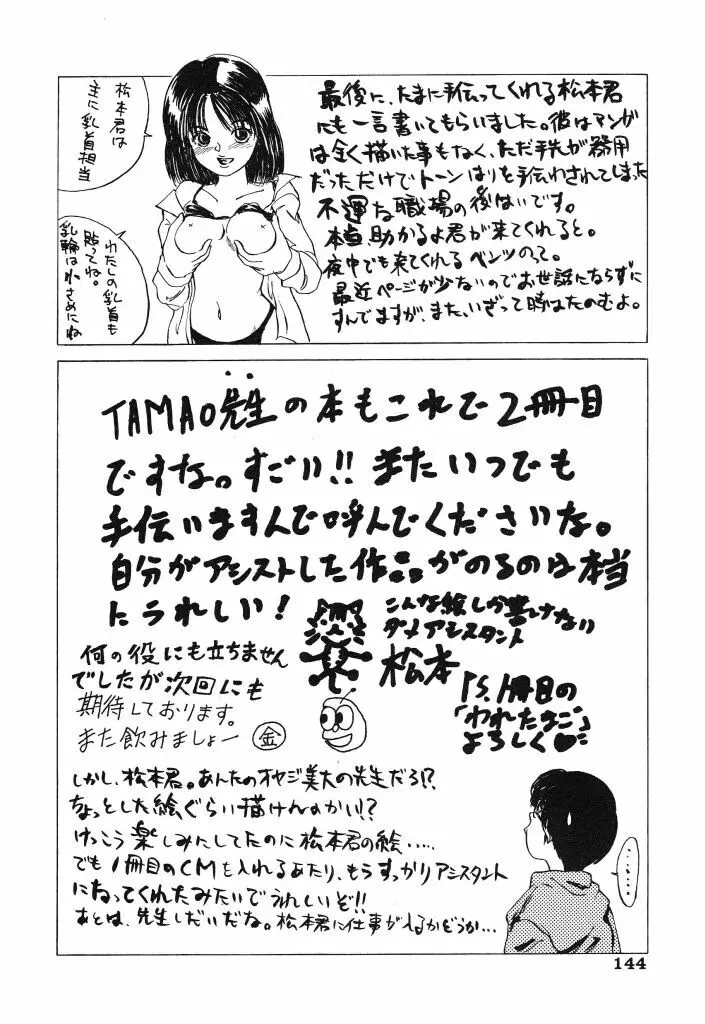 最後に、たまに手伝ってくれる松本君
にも一言書いてもらいました。彼はマンガ
は全く描いた事もなく、ただ手先が器用
だっただけでトーンはりを手伝わされてしまった
不運な職場の後はいです。
本当助かるよ君が来てくれると。
夜中でも来てくれるベンツのって。
最近ページが少ないのでお世話にならずに
すんでますが、また、いざって時はたのむよ。
松本君は
主に乳首担当
わたしの乳首も
貼ってね。
乳輪は小さめにね
TAMAO先生の本もこれで2冊目
ですな。すごい!!またいつでも
手伝いますんで呼んでくださいな。
自分がアシストした作品がのるのは本当
にうれしい!
こんな絵しか書けない
ダメアシスタント
松本
PS.1冊目の
「われたまご」
よろしく♥
何の役にも立ちません
でしたが次回にも
期待しております。
また飲みましょー ㊎
しかし、松本君。あんたのオヤジ美大の先生だろ!?
ちょっとした絵ぐらい描けんのかい!?
けっこう楽しみにしてたのに松本君の絵‥‥‥
でも1冊目のCMを入れるあたり、もうすっかりアシスタント
になってくれたみたいでうれしいぞ!!
あとは、先生しだいだな。松本君に仕事が入るかどうか…
‥‥‥
144